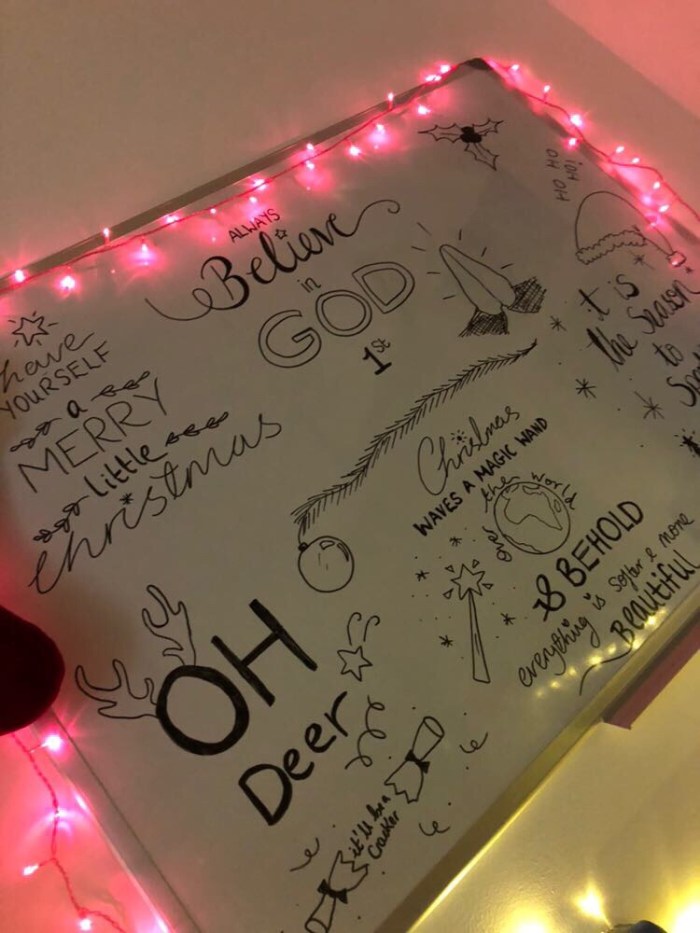 ALWAYS
Believe
in
GOD
1st
have
YOURSELF
a
MERRY
little
christmas
OH OH
OH!
it is
the season
to
Christmas
WAVES A MAGIC WAND
over the World
& BEHOLD
everything is softer & more
Beautiful
OH
Deer
it'll be a
Cracker